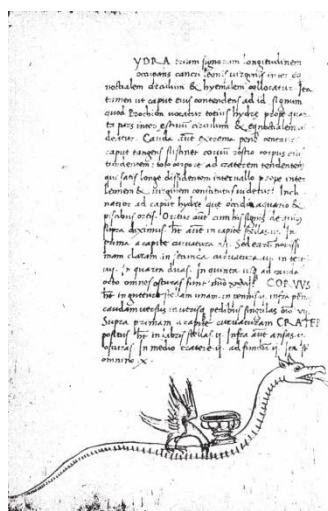 YDRA trium signorum longitudinem
occupans cancri leonis virginis inter eq
noctialem circulum & hyemalem collocatur Ita
tamen ut caput eius contendens ad id signum
quod Prochion vocatur totius hydrę prope quar
ta pars inter estivum circulum & equinoctialem
Cauda aut extrema penę centauri
caput tangens sustinet corvum rostro corpus eius
tundentem toto corpore ad craterem tendentem
qui satis longe dissidentem intervallo prope inter
leonem & virginem constitutus videtur Incli
natior ad caput hydrę quę occidit aquario &
piscibus ortis Oritur aut cum his signis de quibus
supra diximus hęc aut in capite stellas iii In
prima a capite curvatura vi
mam claram in secunda curvatura iii in tert
iiii in quarta duas in quinta ad cauda
octo omnes obscuras CORVVS
het in gutture stellam unam in pennis ii infra pen
caudam versus in utrisque pedibus singulas
Supra primam a capite curvaturam CRATER
positus het in labris stellas ii Infra aut ansas ii
obscuras in medio cratere ii ad fundum ii Ita st
omnino x